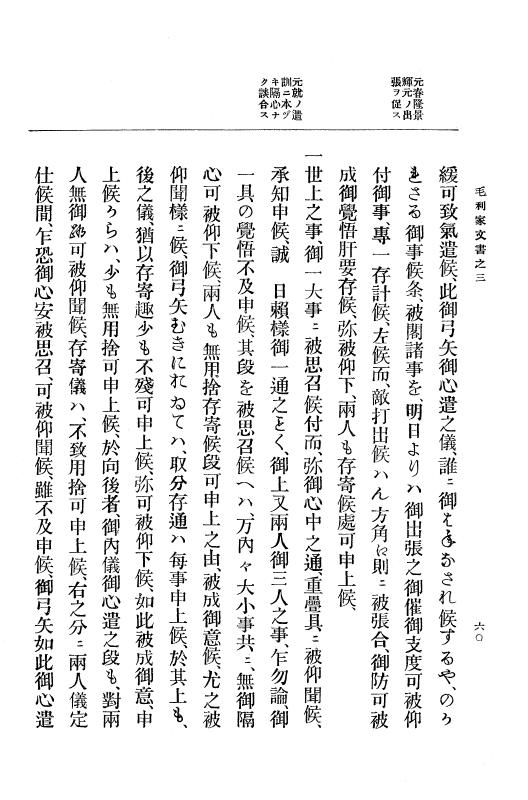 元春隆景
輝元ノ出
張ヲ促ス
元就ノ遺
訓ニ本ヅ
キ隔心ナ
ク談合ス
毛利家文書之三
六〇
緩可致氣遣候、此御弓矢御心遣之儀、誰ニ御
もさる御事候条、被閣諸事を、明日よりハ御出張之御催御支度可被仰
付御事、專一存計候、左候而、敵打出候ハん方角に則ニ被張合、御防可被
成御覺悟肝要存候、弥被仰下、兩人も存寄候處可申上候、
一世上之事、御一大事ニ被思召候付而、弥御心中之通、重疊具ニ被仰聞候、
承知申候、誠 日賴樣御一通之ことく、御上又兩人御三人之事、乍勿論、御
一具の覺悟不及申候、其段を被思召候へハ、万內々大小事共ニ、無御隔
心可被仰下候、兩人も無用捨存寄候段可申上之由、被成御意候、尤之被
仰聞樣ニ候、御弓矢むきにおゐてハ、取分存通ハ每事申上候、於其上も、
後之儀、猶以存寄趣少も不殘可申上候、弥可被仰下候、如此被成御意、申
上候うらハ、少も無用捨可申上候、於向後者、御內儀御心遣之段も、對兩
人無御 可被仰聞候、存寄儀ハ、不致用捨可申上候、右之分ニ兩人儀定
仕候間、乍恐御心安被思召、可被仰聞候、雖不及申候、御弓矢如此御心遣